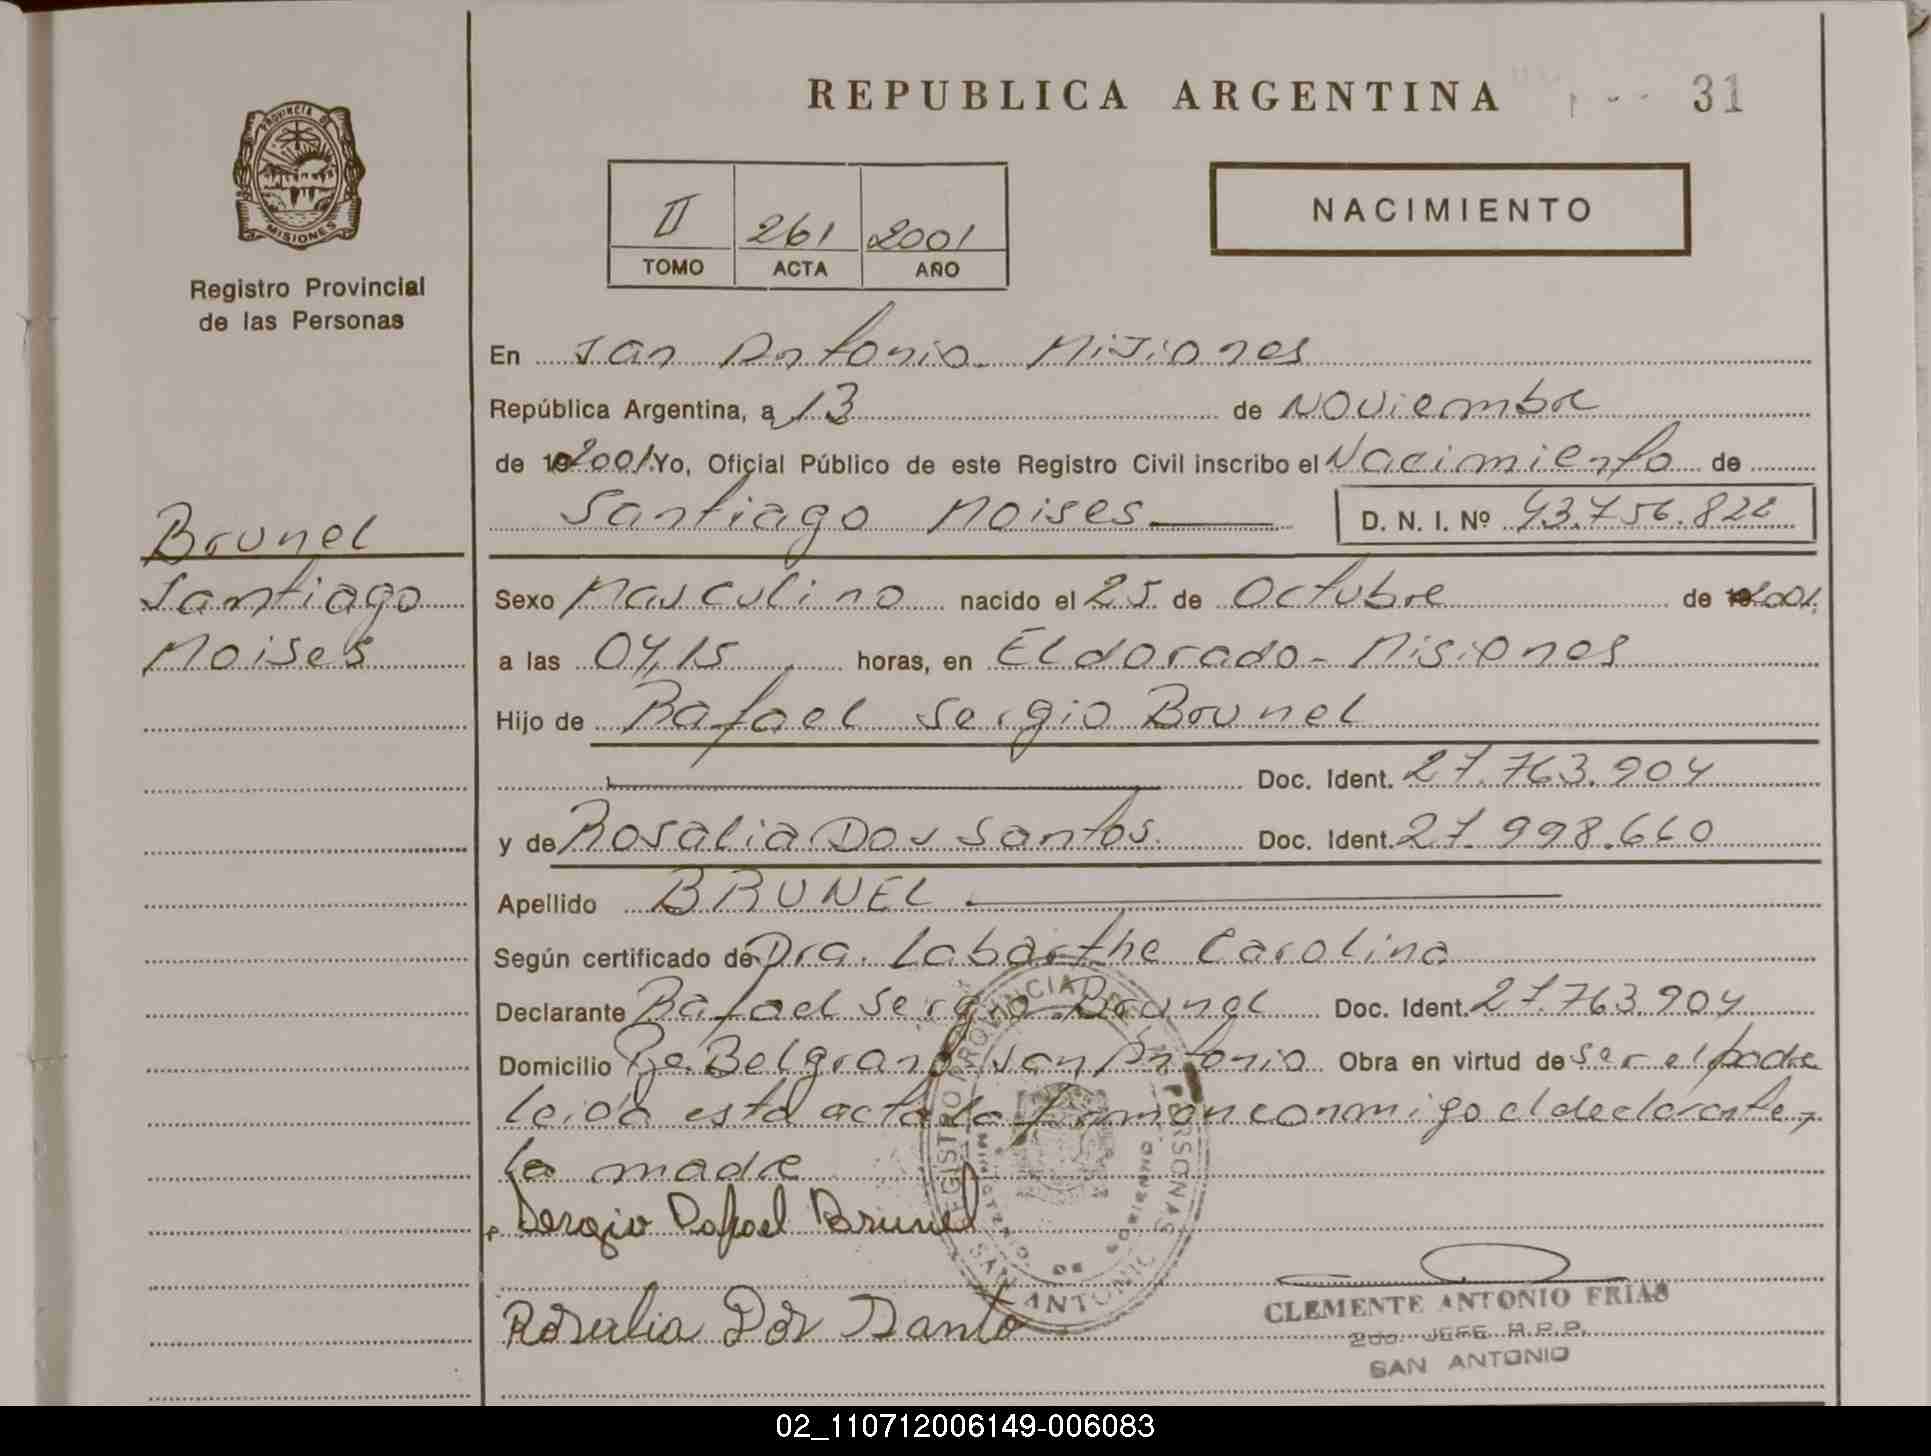 REPUBLICA ARGENTINA
31
PROVINCIA DE
MISIONES
Registro Provincial
de las Personas
II 261 2001
TOMO ACTA AÑO
NACIMIENTO
En San Antonio - Misiones
República Argentina, a 13 de Noviembre
de 19 2001. Yo, Oficial Público de este Registro Civil inscribo el Nacimiento de
Santiago Moises D. N. I. Nº 43.756.822
Brunel
Santiago
Moises
Sexo Masculino nacido el 25 de Octubre de 19 2001.
a las 04,15 horas, en Eldorado - Misiones
Hijo de Rafael Sergio Brunel
Doc. Ident. 27.763.904
y de Rosalia Dos Santos. Doc. Ident. 27.998.660
Apellido BRUNEL
Según certificado de Dra. Labarthe Carolina
Declarante Rafael Sergio Brunel Doc. Ident. 27.763.904
Domicilio Bo. Belgrano San Antonio Obra en virtud de ser el padre
leida esta acta la firman conmigo el declarante y
la madre
Sergio Rafael Brunel
Rosalia Dos Santo
REGISTRO PROVINCIAL DE LAS PERSONAS
MINISTERIO DE GOBIERNO
SAN ANTONIO
CLEMENTE ANTONIO FRIAS
2do. JEFE R.P.P.
SAN ANTONIO
02_110712006149-006083